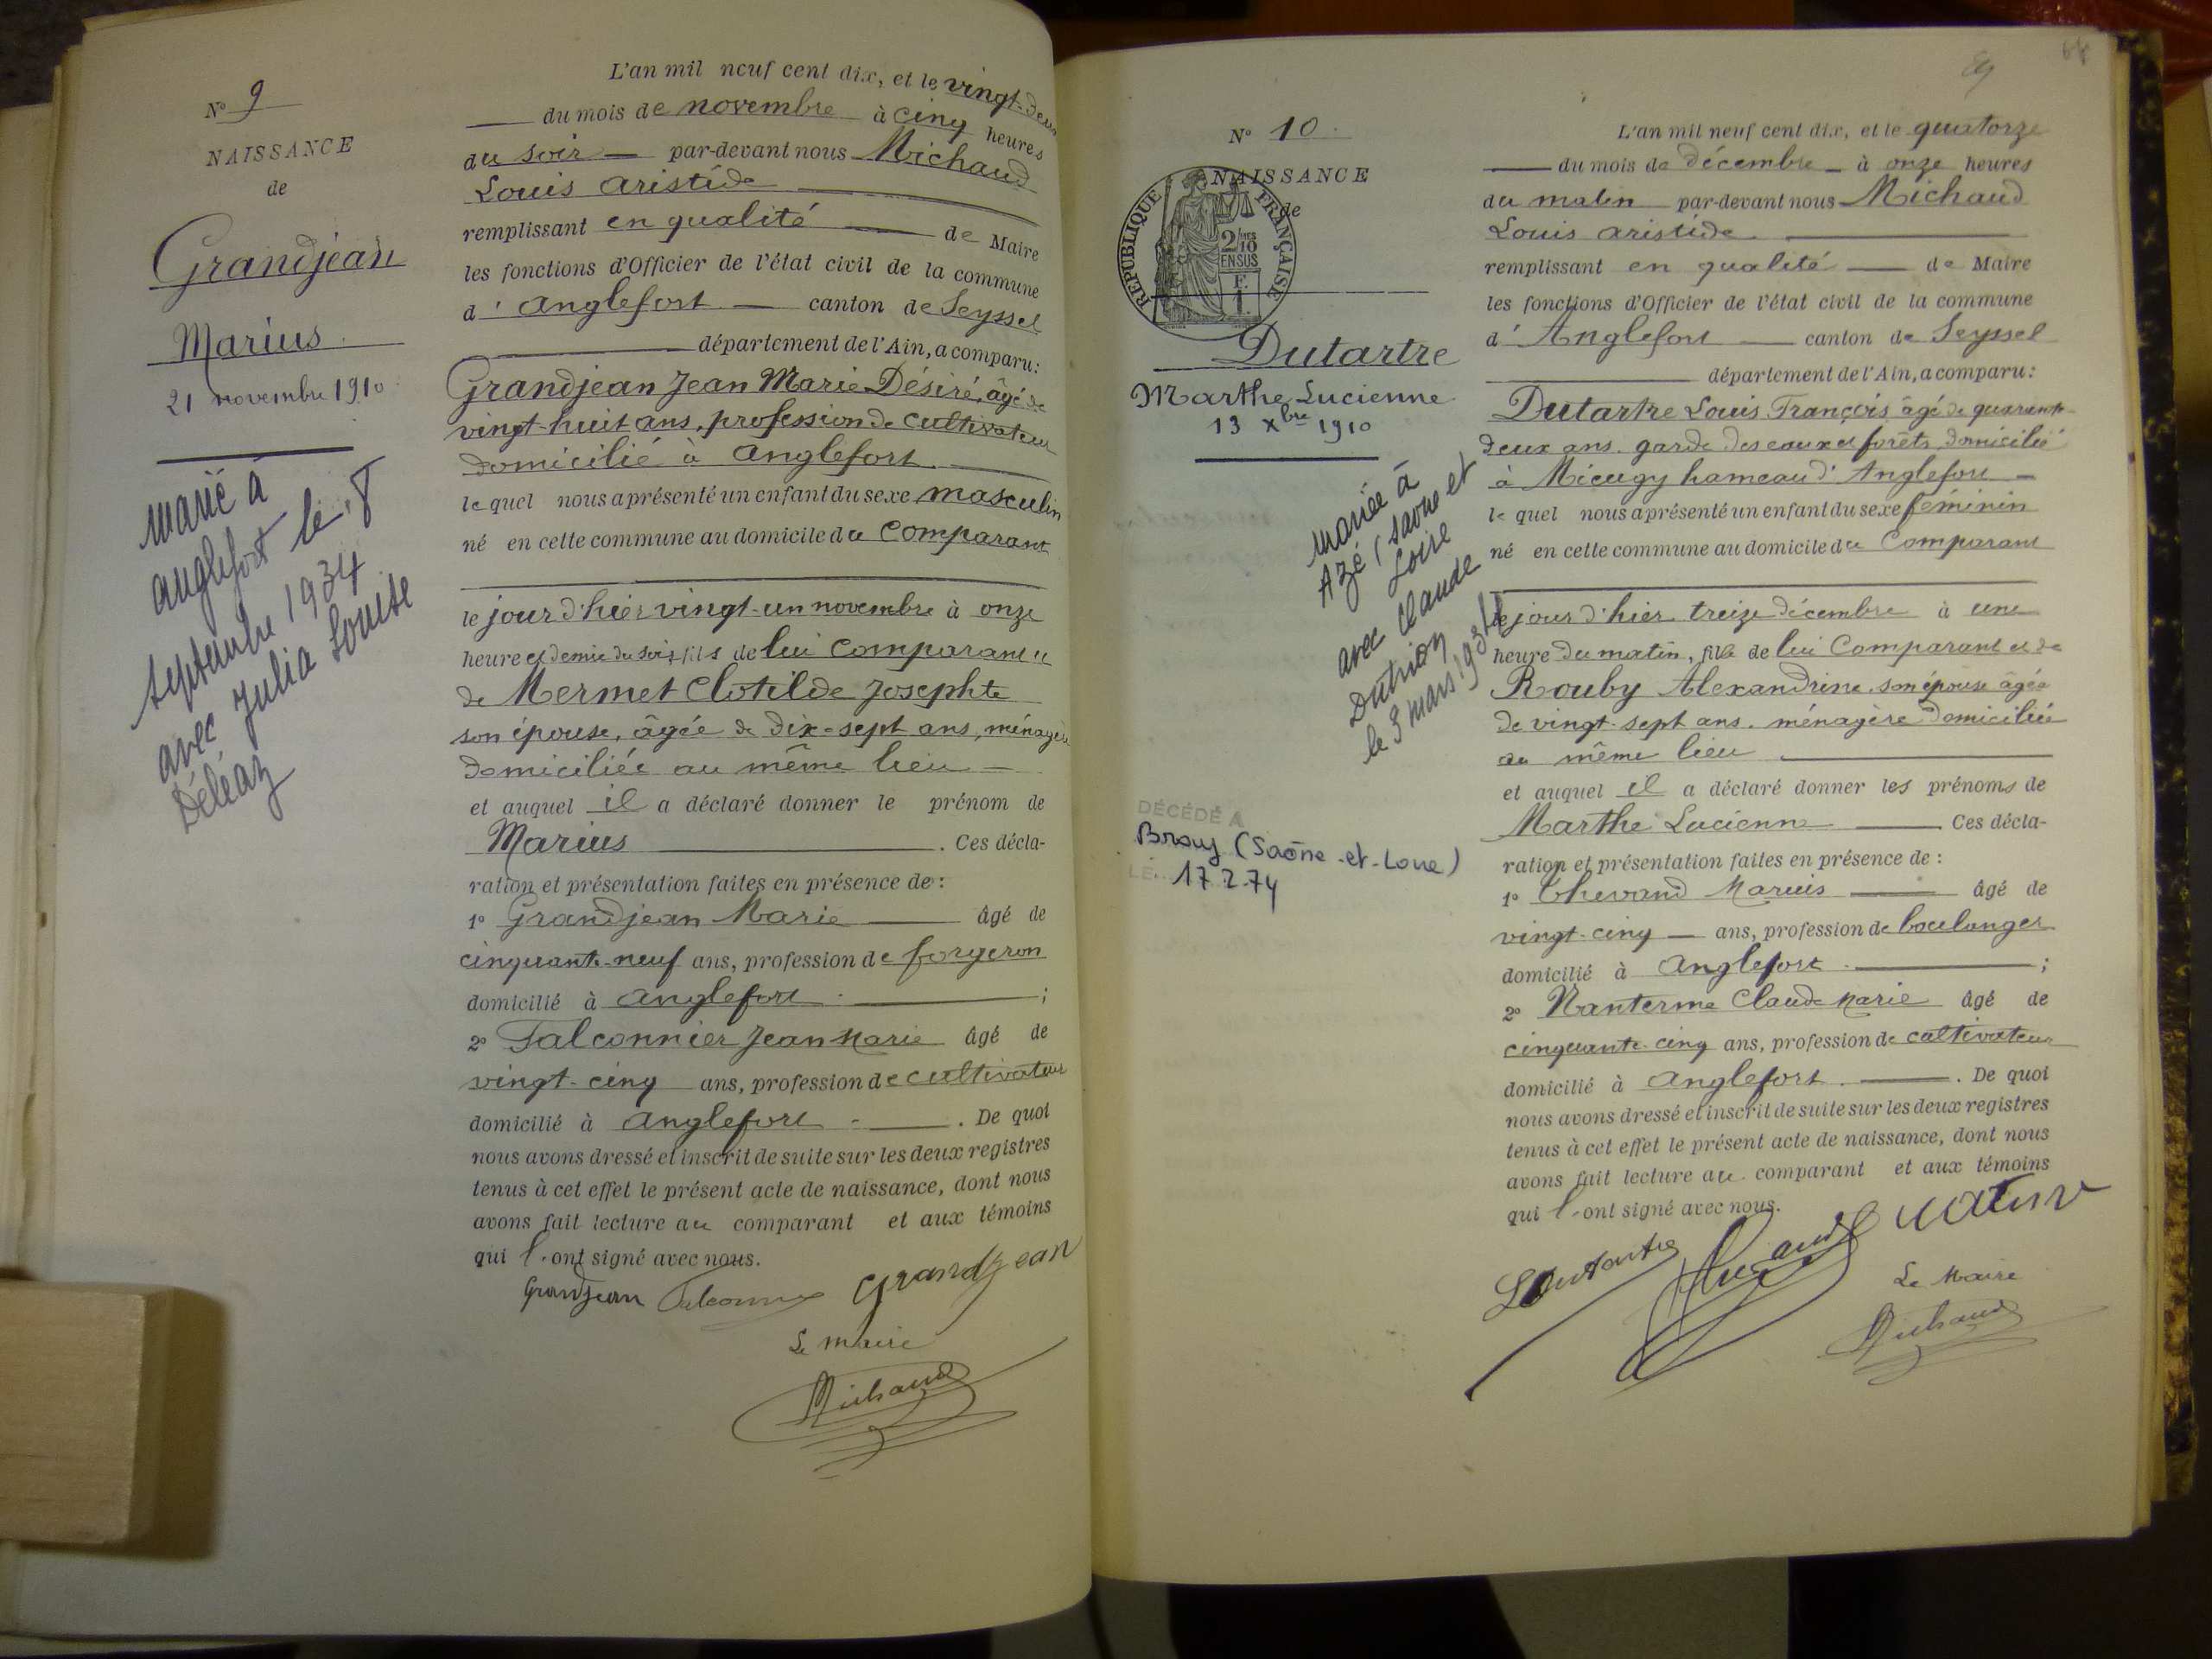 N° 9
NAISSANCE
de
Grandjean
Marius
21 novembre 1910
marié à
anglefort le 8
septembre 1934
avec Julia Louise
Déléaz
L'an mil neuf cent dix, et le vingt-deux
du mois de novembre à cinq heures
du soir par-devant nous Michaud
Louis Aristide
remplissant en qualité de Maire
les fonctions d'Officier de l'état civil de la commune
d'Anglefort canton de Seyssel
département de l'Ain, a comparu:
Grandjean Jean Marie Désiré, âgé de
vingt-huit ans, profession de cultivateur
domicilié à Anglefort.
le quel nous a présenté un enfant du sexe masculin
né en cette commune au domicile du Comparant
le jour d'hier vingt-un novembre à onze
heure et demie du soir, fils de lui Comparant et
de Mermet Clotilde Josephte
son épouse, âgée de dix-sept ans, ménagère
domiciliée au même lieu
et auquel il a déclaré donner le prénom de
Marius. Ces décla-
ration et présentation faites en présence de:
1° Grandjean Marie âgé de
cinquante-neuf ans, profession de forgeron
domicilié à Anglefort;
2° Falconnier Jean Marie âgé de
vingt-cinq ans, profession de cultivateur
domicilié à Anglefort. De quoi
nous avons dressé et inscrit de suite sur les deux registres
tenus à cet effet le présent acte de naissance, dont nous
avons fait lecture au comparant et aux témoins
qui l'ont signé avec nous.
Grandjean Falconnier Grandjean
Le Maire
Michaud
64
N° 10.
NAISSANCE
de
REPUBLIQUE FRANÇAISE
2/10 MES
EN SUS
F.
1.
Dutartre
Marthe Lucienne
13 Xbre 1910
mariée à
Azé (Saone et
Loire
avec Claude
le 3 mars
DÉCÉDÉ A
(Saône-et-Loire)
LE 17.2.74
L'an mil neuf cent dix, et le quatorze
du mois de décembre à onze heures
du matin par-devant nous Michaud
Louis Aristide
remplissant en qualité de Maire
les fonctions d'Officier de l'état civil de la commune
d'Anglefort canton de Seyssel
département de l'Ain, a comparu:
Dutartre Louis François âgé de quarante-
deux ans. garde des eaux et forêts, domicilié
à hameau d'Anglefort
le quel nous a présenté un enfant du sexe féminin
né en cette commune au domicile du Comparant
le jour d'hier treize décembre à une
heure du matin, fille de lui Comparant et de
Rouby Alexandrine son épouse âgée
de vingt-sept ans. ménagère domiciliée
au même lieu
et auquel il a déclaré donner les prénoms de
Marthe Lucienne. Ces décla-
ration et présentation faites en présence de:
1° Marius âgé de
vingt-cinq ans, profession de boulanger
domicilié à Anglefort;
2° Nanterme Claude Marie âgé de
cinquante-cinq ans, profession de cultivateur
domicilié à Anglefort. De quoi
nous avons dressé et inscrit de suite sur les deux registres
tenus à cet effet le présent acte de naissance, dont nous
avons fait lecture au comparant et aux témoins
qui l'ont signé avec nous.
LDutartre
Le Maire
Michaud